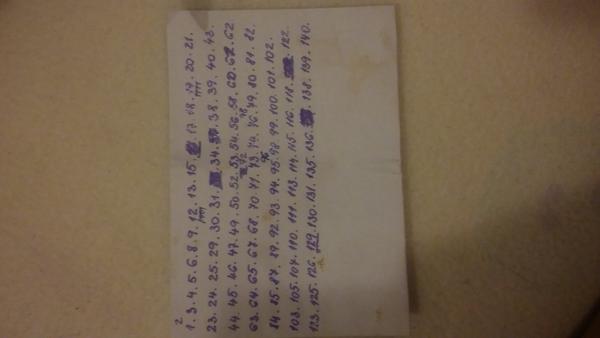 2
1. 3. 4. 5. 6. 8. 9. 12. 13. 15. 17. 18. 19. 20. 21.
23. 24. 25. 29. 30. 31. 34. 38. 39. 40. 43.
44. 45. 46. 47. 49. 50. 52. 53. 54. 56. 58. 60. 62
63. 64. 65. 67. 68. 70. 71. 73. 74. 76. 79. 80. 81. 82.
84. 85. 87. 89. 92. 93. 94. 95. 98. 99. 100. 101. 102.
103. 105. 107. 110. 111. 113. 114. 115. 116. 118. 122.
123. 125. 126. 129. 130. 131. 135. 136. 138. 139. 140.